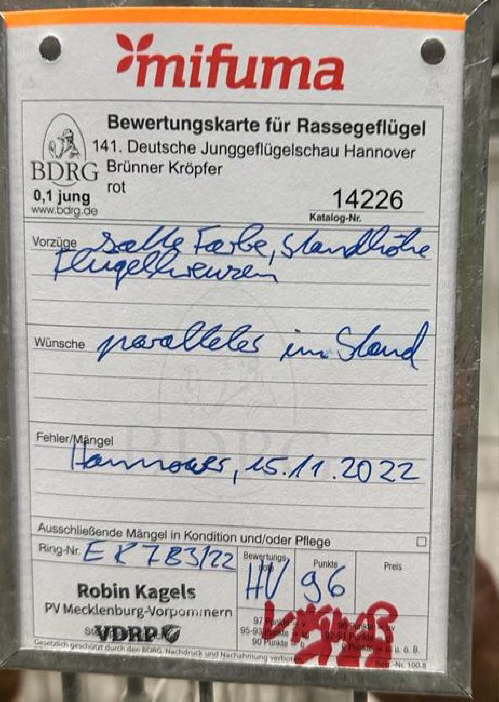 mifuma
Bewertungskarte für Rassegeflügel
141. Deutsche Junggeflügelschau Hannover
BDRG
Brünner Kröpfer
rot
0,1 jung
www.bdrg.de
14226
Katalog-Nr.
Vorzüge satte Farbe, Standhöhe
Flügelkreuzen
Wünsche paralleler im Stand
Fehler/Mängel
Hannover, 15.11.2022
Ausschließende Mängel in Kondition und/oder Pflege
Ring-Nr. EK 783/22
Bewertungs
Punkte
Preis
HV 96
Robin Kagels
PV Mecklenburg-Vorpommern
VDRP
97 Punkte
95-93
90 Punkte
Gesetzlich geschützt durch den BDRG. Nachdruck und Nachahmung verboten